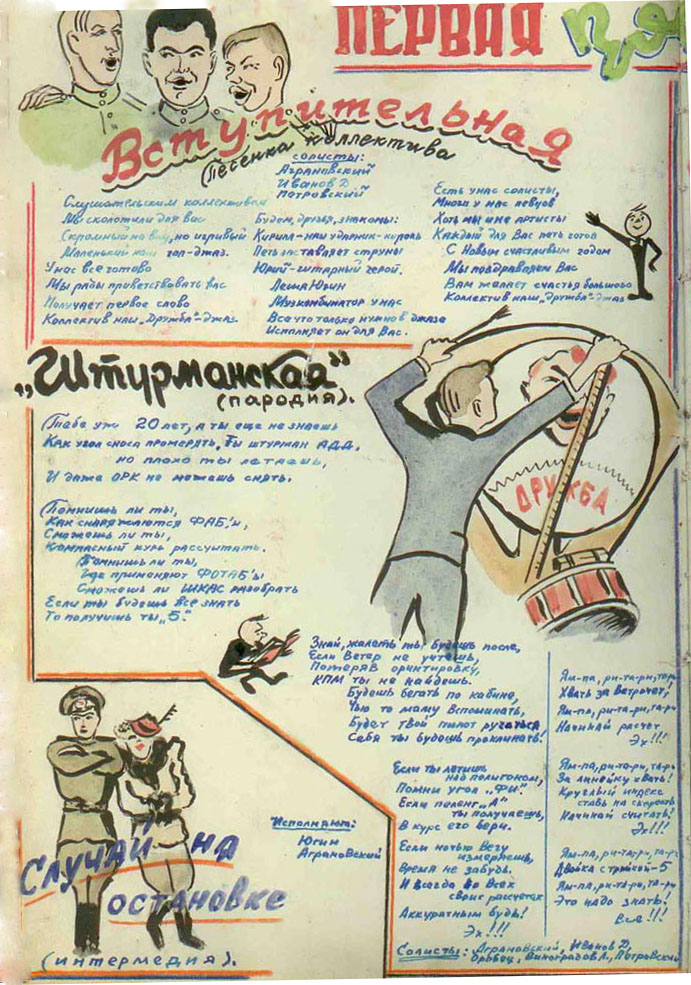 ПЕРВАЯ
Вступительная
(песенка коллектива
солисты:
Аграновский
Иванов Д
Петровский
Слушательским коллективом
Мы сколотили для вас
Скромный на вид, но игривый
Маленький наш гоп-джаз.
У нас все готово
Мы рады приветствовать вас
Получает первое слово
Коллектив наш „Дружба"-джаз.
Будем, друзья, знакомы:
Кирилл-наш ударник-король
Петь заставляет струны
Юрий-гитарный герой.
Леша Югин
Музкомбинатор у нас
Все что только нужно в джазе
Исполняет он для Вас.
Есть у нас солисты,
Много у нас певцов
Хоть мы и не артисты
Каждый для Вас петь готов
С Новым счастливым годом
Мы поздравляем Вас
Вам желает счастья большого
Коллектив наш „Дружба"-джаз
„Штурманская"
(пародия).
Тебе уж 20 лет, а ты еще не знаешь
Как угол сноса промерять, Ты штурман АДД,
но плохо ты летаешь,
И даже ОРК не можешь снять.
Помнишь ли ты,
Как снаряжаются ФАБ'ы,
Сможешь ли ты,
Компасный курс рассчитать.
Помнишь ли ты,
Где применяют ФОТАБ'ы
Сможешь ли ШКАС разобрать
Если ты будешь все знать
То получишь ты „5".
ДРУЖБА
Знай, жалеть ты будешь после,
Если Ветер не учтешь,
Потеряв ориентировку,
КПМ ты не найдешь.
Будешь бегать по кабине,
Чью то маму вспоминать,
Будет твой пилот ругаться
Себя ты будешь проклинать!
Если ты летишь
над полигоном,
Помни угол „ФИ".
Если пеленг „А"
ты получаешь,
В курс его бери.
Если ночью Вегу
измеряешь,
Время не забудь.
И всегда во всех
своих расчетах
Аккуратным будь!
Эх!!!
Ям-па, ри-та-ри, та-р
Хвать за ветрочет,
Ям-па, ри-та-ри, та-ри
Начинай расчет
Эх!!!
Ям-па, ри-та-ри, та-р
За линейку хвать!
Круглый индекс
ставь на скорость
Начинай считать!
Эх!!!
Ям-па, ри-та-ри, та-р
Двойка с тройкой-5
Ям-па, ри-та-ри, та-ри
Это надо знать!
Все!!!
Солисты: Аграновский, Иванов Д,
Виноградов Л., Петровский
Случай на
остановке
(интермедия).
Исполняют:
Югин
Аграновский